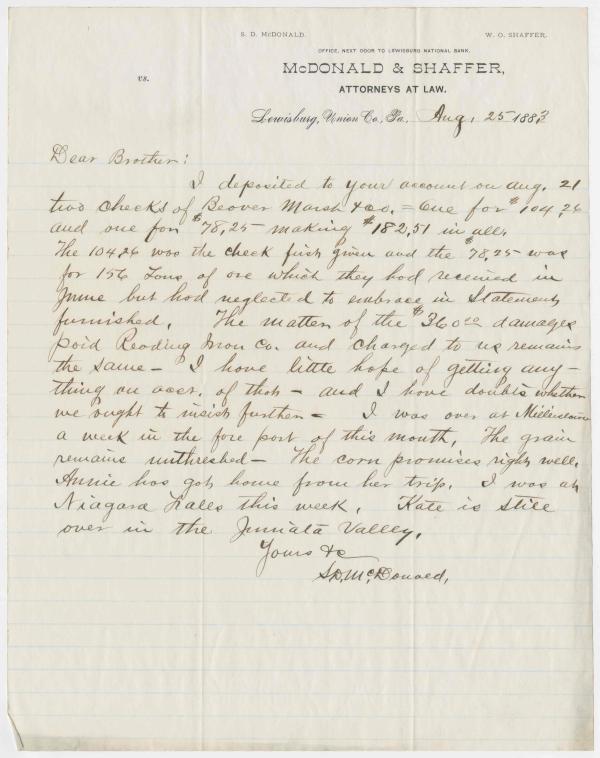 S. D. McDONALD. W. O. SHAFFER.
OFFICE, NEXT DOOR TO LEWISBURG NATIONAL BANK.
vs. McDONALD & SHAFFER,
ATTORNEYS AT LAW.
Lewisburg, Union Co., Pa., Aug, 25 1883
Dear Brother:
I deposited to your account on Aug. 21
two checks of Beaver Marsh &co. = One for $104,26
and one for $78,25 making $182,51 in all.
The 104,26 was the check first given and the $78,25 was
for 156 Tons of ore which they had received in
June but had neglected to embrace in Statement
furnished. The matter of the $360 00 damages
paid Reading Iron Co. and charged to us remains
the same – I have little hope of getting any-
thing on acct. of that – and I have doubts whether
we ought to insist further – I was over at
a week in the fore part of this month. The grain
remains unthreshed – The corn promises right well.
Annie has got home from her trip. I was at
Niagara Falls this week. Kate is still
over in the Juniata Valley.
Yours &c
S.D. McDonald,